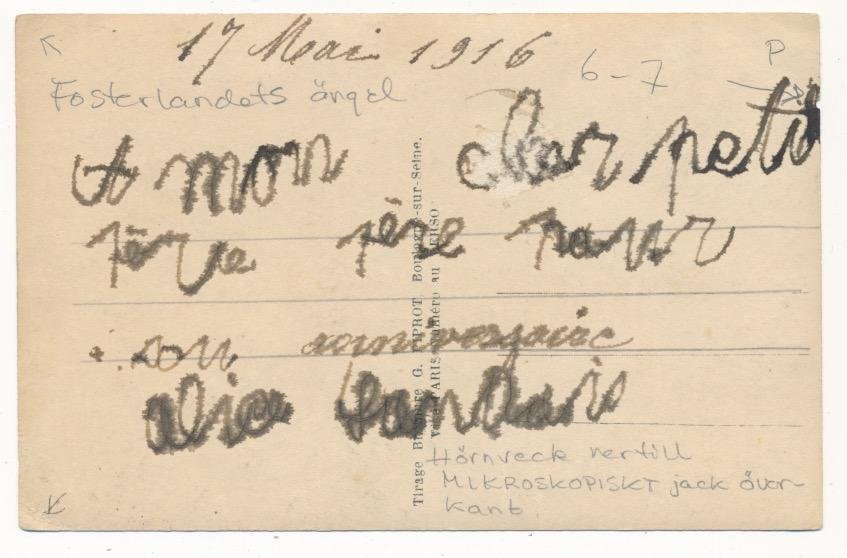 17 Mai 1916
6-7
P
Fosterlandets ängel
A mon cher petit
père pour
son anniversaire
alice
Tirage Bromure G. PIPROT, Boulogne-sur-Seine.
PARIS numéro au VERSO
Hörnveck nertill
MIKROSKOPISKT jack över-
kant